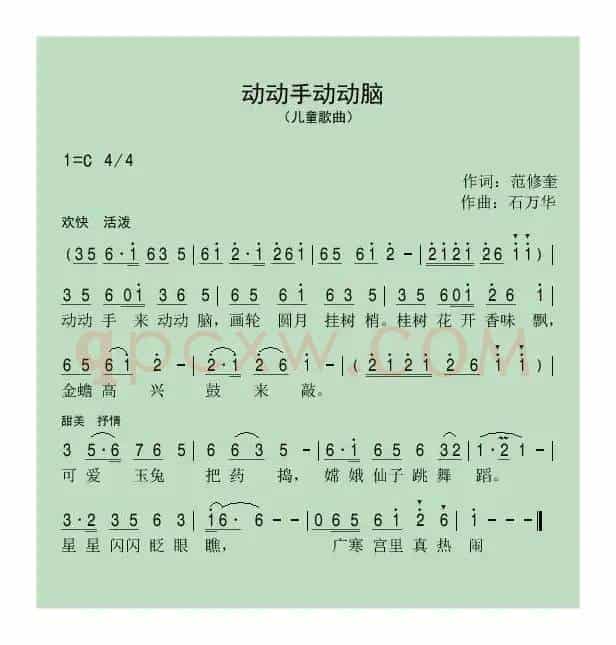 动动手动动脑
(儿童歌曲)
1=C 4/4
作词：范修奎
作曲：石万华
欢快 活泼
(35 6·i 63 5|6i 2·i 26i|65 6i 2 -|2i2i 26 ii)|
35 60i 36 5|65 65 63 5|35 60i 26 i|
动动 手 来 动动 脑，画轮 圆月 挂树 梢。桂树 花 开 香味 飘，
qpcxw.com
6561 2|2·i 26 i -|(2i2i 26 ii)|
金蟾 高 兴 鼓 来 敲。
甜美 抒情
3 5·6 76 5|6 63 5 -|6·i 65 6 32|1·2 1 -|
可 爱 玉兔 把 药 捣， 嫦 娥 仙子 跳 舞 蹈。
3·2 35 6 3|i6· 6 - -|065 6i 2 6|i - -‖
星 星 闪闪 眨 眼 瞧， 广寒 宫里 真 热 闹